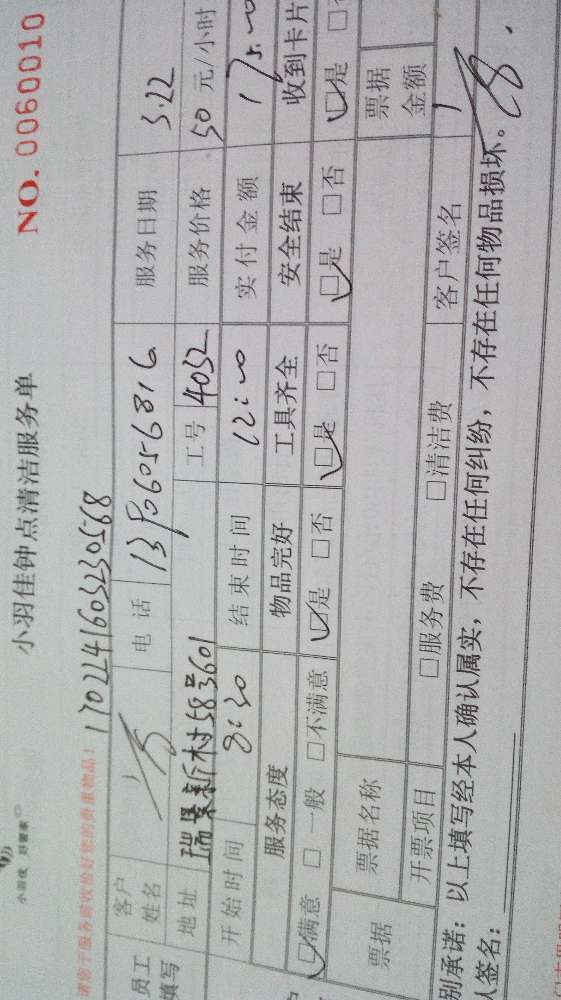 小羽佳 好管家
小羽佳钟点清洁服务单
NO. 0060010
请您于服务前收拾好您的贵重物品!
1702241603230568
员工填写
客户姓名
电话 13806056816
服务日期 3.22
地址 瑞景新村58号601
工号 4032
服务价格 50 元/小时
开始时间 8:30
结束时间 12:00
实付金额 175.00
服务态度 物品完好 工具齐全 安全结束 收到卡片
☑满意 □一般 □不满意 ☑是 □否 ☑是 □否 ☑是 □否 ☑是 □否
票据 票据名称 票据金额
开票项目 □服务费 □清洁费 客户签名
别承诺:以上填写经本人确认属实,不存在任何纠纷,不存在任何物品损坏。
人签名: